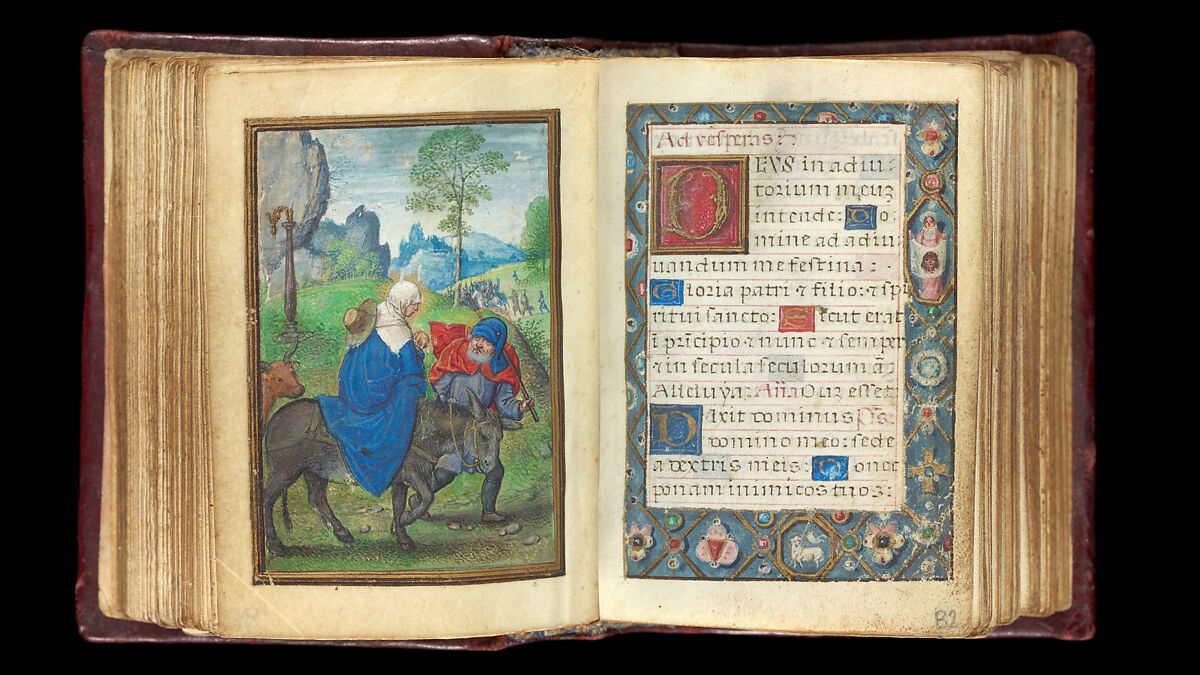 Ad vesperas
DEVS in adiu-
torium meuz
intende: Do-
mine ad adiu-
uandum me festina:
Gloria patri ⁊ filio: ⁊ spi
ritui sancto: Sicut erat
i principio ⁊ nunc ⁊ semper
⁊ in secula seculorum a
Alleluya: Aña O uz esset
Dixit dominus Ps
domino meo: sede
a dextris meis: Donec
ponam inimicos tuos:
82